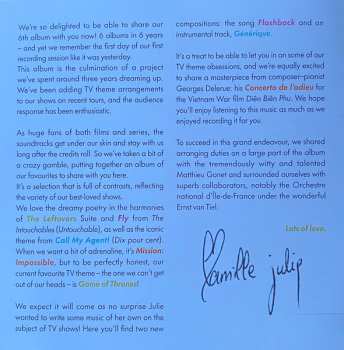 We're so delighted to be able to share our
6th album with you now! 6 albums in 6 years
– and yet we remember the first day of our first
recording session like it was yesterday.
This album is the culmination of a project
we've spent around three years dreaming up.
We've been adding TV theme arrangements
to our shows on recent tours, and the audience
response has been enthusiastic.
As huge fans of both films and series, the
soundtracks get under our skin and stay with us
long after the credits roll. So we've taken a bit of
a crazy gamble, putting together an album of
our favourites to share with you here.
It's a selection that is full of contrasts, reflecting
the variety of our best-loved shows.
We love the dreamy poetry in the harmonies
of The Leftovers Suite and Fly from The
Intouchables (Untouchable), as well as the iconic
theme from Call My Agent! (Dix pour cent).
When we want a bit of adrenaline, it's Mission:
Impossible, but to be perfectly honest, our
current favourite TV theme – the one we can't get
out of our heads – is Game of Thrones!
We expect it will come as no surprise Julie
wanted to write some music of her own on the
subject of TV shows! Here you'll find two new
compositions: the song Flashback and an
instrumental track, Générique.
It's a treat to be able to let you in on some of our
TV theme obsessions, and we're equally excited
to share a masterpiece from composer–pianist
Georges Delerue: his Concerto de l'adieu for
the Vietnam War film Diên Biên Phu. We hope
you'll enjoy listening to this music as much as we
enjoyed recording it for you.
To succeed in the grand endeavour, we shared
arranging duties on a large part of the album
with the tremendously witty and talented
Matthieu Gonet and surrounded ourselves with
superb collaborators, notably the Orchestre
national d'Île-de-France under the wonderful
Ernst van Tiel.
Lots of love,
Camille Julie